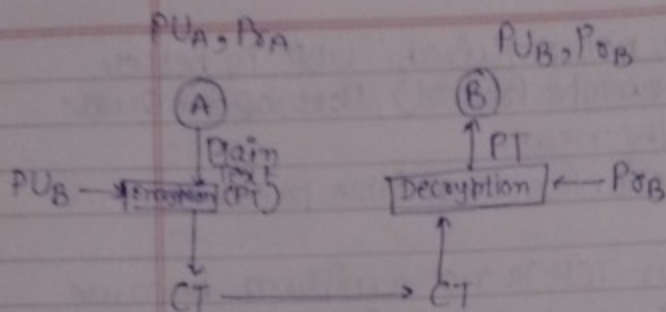 PUA, PrA
PUB, PrB
A
B
Plain
Text
(PT)
PT
PUB
Encryption
Decryption
PrB
CT
CT